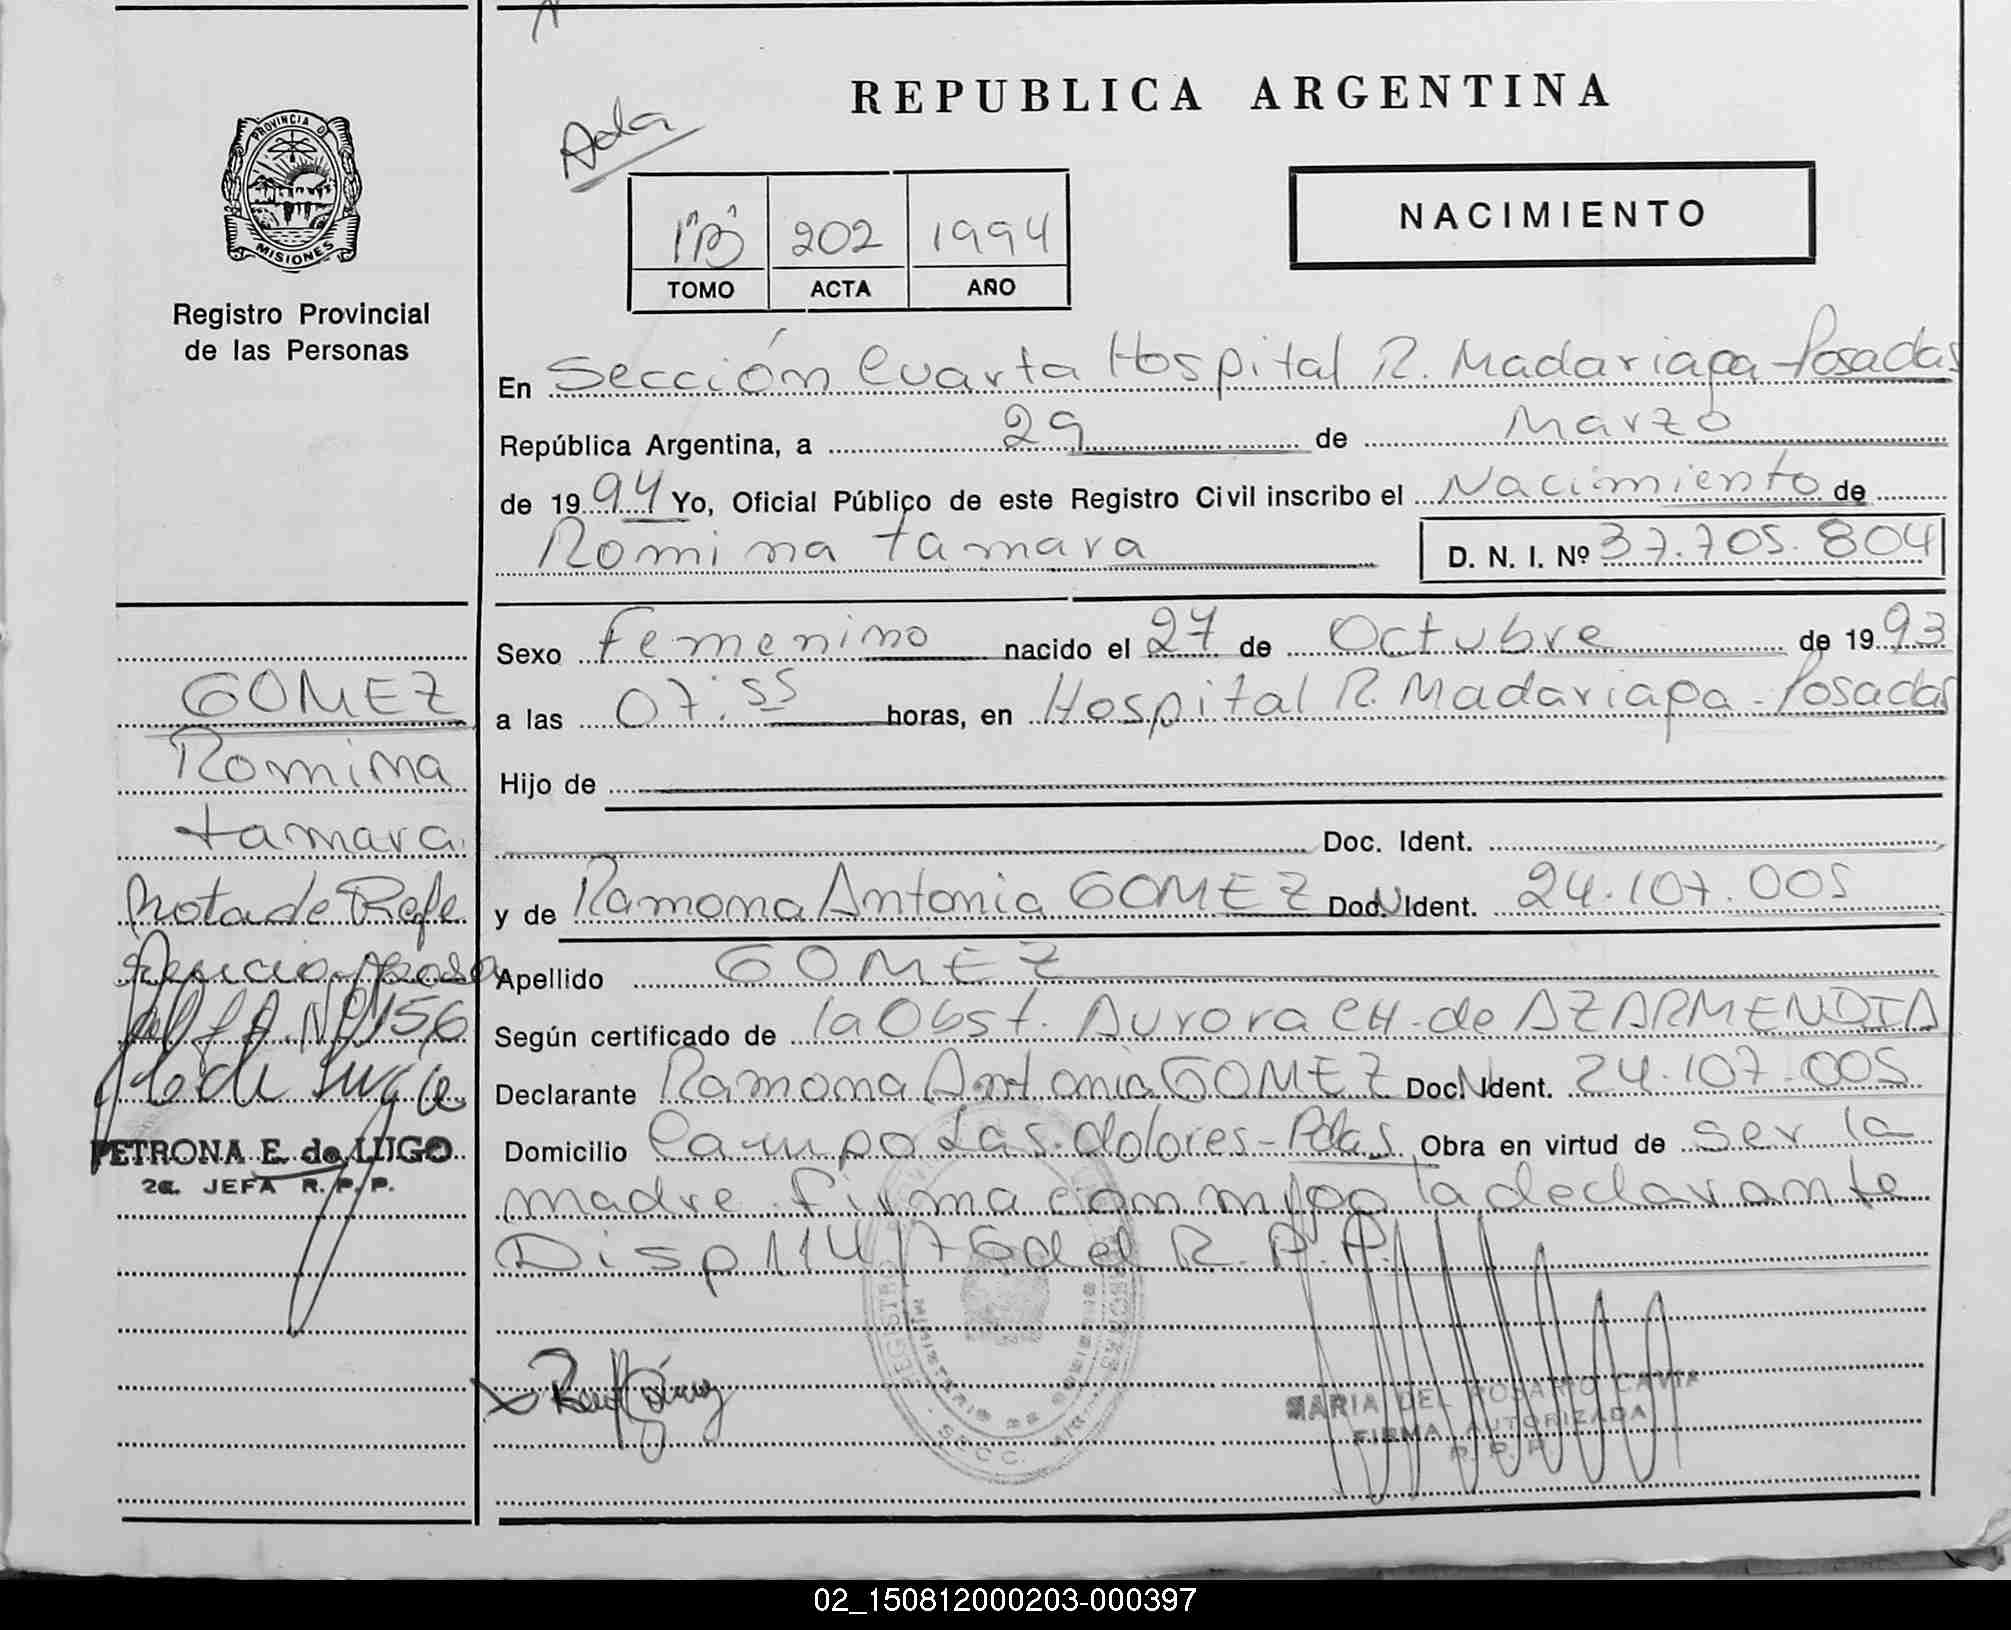 REPUBLICA ARGENTINA
Ada
PROVINCIA DE
MISIONES
Registro Provincial
de las Personas
1º"B" 202 1994
TOMO ACTA AÑO
NACIMIENTO
En Sección Cuarta Hospital R. Madariaga - Posadas
República Argentina, a 29 de Marzo
de 1994 Yo, Oficial Público de este Registro Civil inscribo el Nacimiento de
Romina tamara D. N. I. Nº 37.705.804
Sexo femenino nacido el 27 de Octubre de 1993
a las 07:55 horas, en Hospital R. Madariaga - Posadas
Hijo de
Doc. Ident.
y de Ramona Antonia GOMEZ Doc. Ident. 24.107.005
Apellido GOMEZ
Según certificado de la Obst. Aurora CH. de AZARMENDIA
Declarante Ramona Antonia GOMEZ Doc. Ident. 24.107.005
Domicilio Campo Las dolores - Pdas Obra en virtud de ser la
madre firma conmigo la declarante
Disp 114/76 del R. P. P.
GOMEZ
Romina
tamara
Nota de Refe
rencia
Nº 156
PETRONA E. de LUGO
2a. JEFA R. P. P.
MARIA DEL ROSARIO CAVIA
FIRMA AUTORIZADA
R. P. P.
02_150812000203-000397